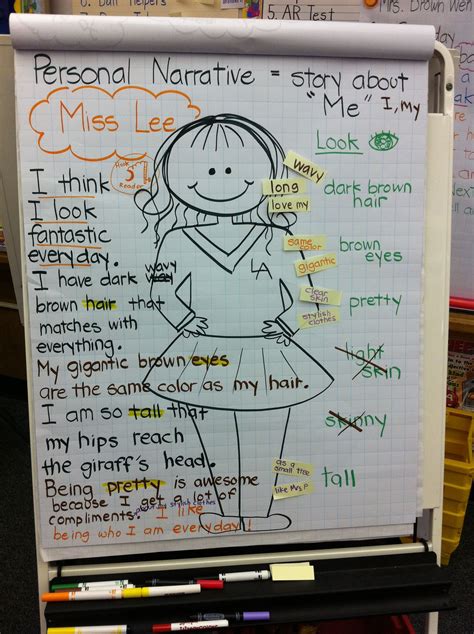 5. AR Test
Mrs. Brown Wen
Personal Narrative = story about
"Me" I, my
Miss Lee
Look
I think
I look
fantastic
everyday.
I have dark wavy
brown hair that
matches with
everything.
My gigantic brown eyes
are the same color as my hair.
I am so tall that
my hips reach
the giraff's head.
Being pretty is awesome
because I get a lot of
compliments. I like
being who I am everyday!
LA
wavy
long
love my
dark brown
hair
same
color
gigantic
brown
eyes
clear
skin
stylish
clothes
pretty
light
skin
skinny
as a
small tree
like Mrs. P
tall